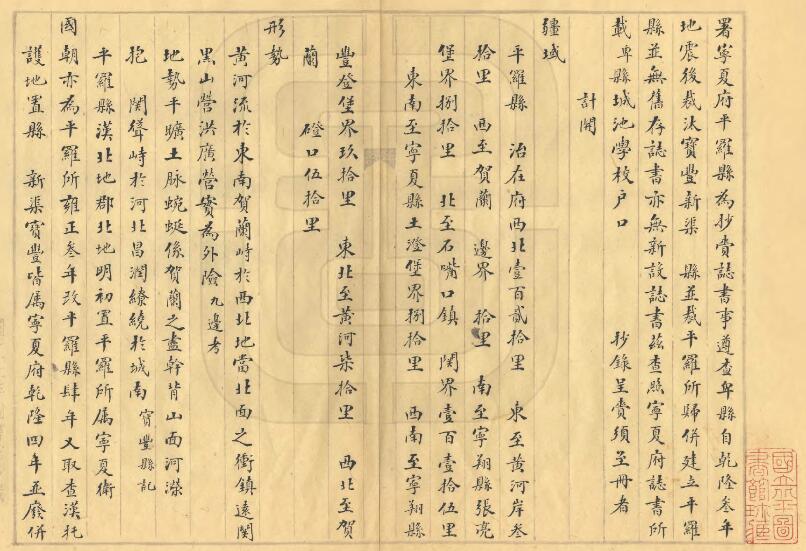 署寧夏府平羅縣為抄賫誌書事遵查卑縣自乾隆叁年
地震後裁汰寶豐新渠 縣並裁平羅所歸併建立平羅
縣並無舊存誌書亦無新設誌書茲查照寧夏府誌書所
載卑縣城池學校户口 抄錄呈賫須至冊者
計開
疆域
平羅縣 治在府西北壹百貳拾里 東至黃河岸叁
拾里 西至賀蘭 邊界 拾里 南至寧朔縣張亮
堡界捌拾里 北至石嘴口鎮 関界壹百壹拾伍里
東南至寧夏縣王澄堡界捌拾里 西南至寧朔縣
豐登堡界玖拾里 東北至黃河柒拾里 西北至賀
蘭 磴口伍拾里
形勢
黃河流於東南賀蘭峙於西北地當北面之衝鎮遠関
黑山營洪廣營實為外險九邊考
地勢平曠土脉蜿蜒係賀蘭之盡幹背山面河濴
抱 関聳峙於河北昌潤繚繞於城南寶豐縣記
平羅縣漢北地郡北地明初置平羅所属寧夏衛
國朝亦為平羅所雍正叁年改平羅縣肆年又取查漢托
護地置縣 新渠寶豐皆属寧夏府乾隆四年並廢併
國立北平圖書館珍藏